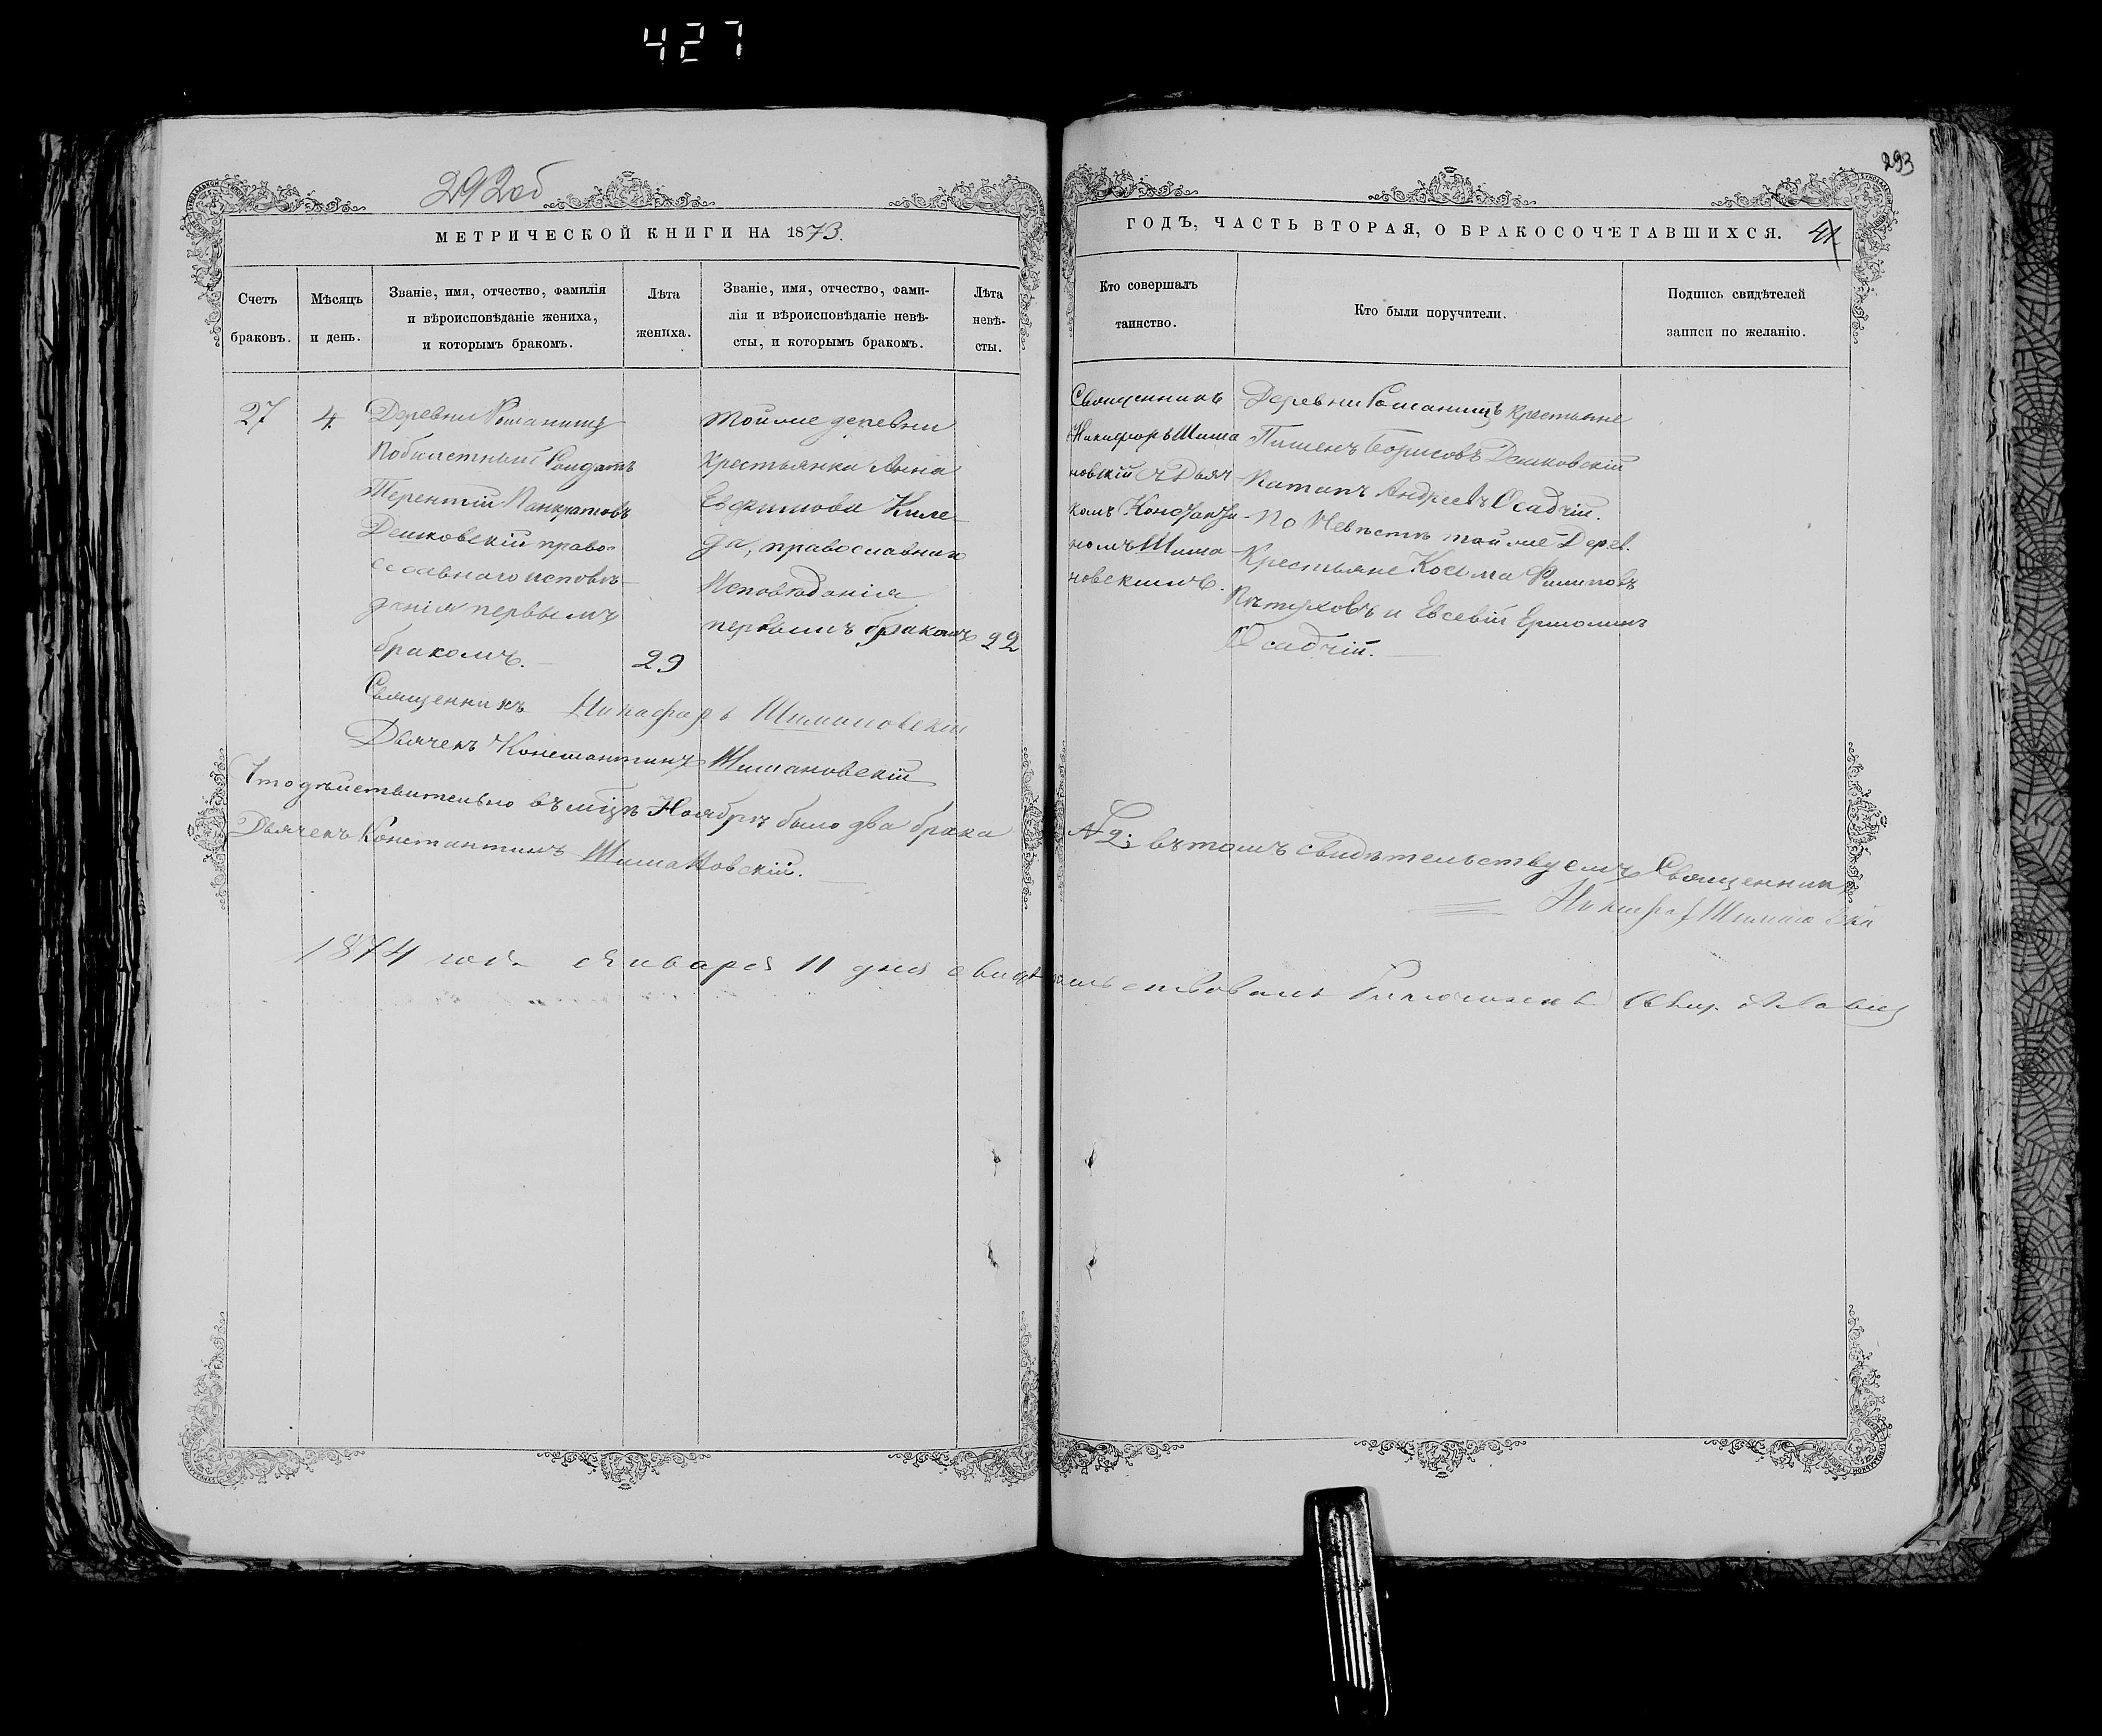 427
292об
293
МЕТРИЧЕСКОЙ КНИГИ НА 1873.
Счетъ браковъ.
Мѣсяцъ и день.
Званіе, имя, отчество, фамилія
и вѣроисповѣданіе жениха,
и которымъ бракомъ.
Лѣта жениха.
Званіе, имя, отчество, фами-
лія и вѣроисповѣданіе невѣ-
сты, и которымъ бракомъ.
Лѣта невѣ-
сты.
27
4
Деревни
Побилетный Солдатъ
Терентій Панкратовъ
Демковскій право-
славнаго исповѣ-
данія первымъ
бракомъ.
29
Тойже деревни
Крестьянка Анна
Евфимова
да, православнаго
Исповѣданія
первымъ бракомъ 22
Священникъ Никифоръ Шимановскій
Дьячекъ Константинъ Шимановскій
Что дѣйствительно въ мцѣ Ноябрѣ было два брака
Дьячекъ Константинъ Шимановскій.
1874 года Января 11 дня свидѣтельствовалъ
ГОДЪ, ЧАСТЬ ВТОРАЯ, О БРАКОСОЧЕТАВШИХСЯ.
41
Кто совершалъ
таинство.
Кто были поручители.
Подпись свидѣтелей
записи по желанію.
Священникъ
Никифоръ Шима
новскій съ Дьяч
комъ Константи
номъ Шима
новскимъ.
Деревни крестьяне
Пименъ Борисовъ Демковскій
Потапъ Андреевъ Осадчій.
По Невѣстѣ тойже Дерев.
Крестьяне Косьма Филиповъ
Пѣтуховъ и Евсевій Ермолинъ
Осадчій.
№ 2; въ томъ свидѣтельствуемъ Священникъ
Никифоръ